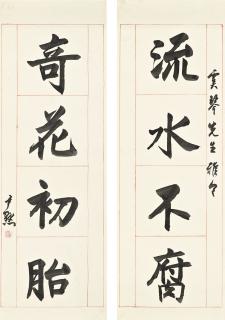 霙琴先生雅令
流水不腐
奇花初胎
尹默